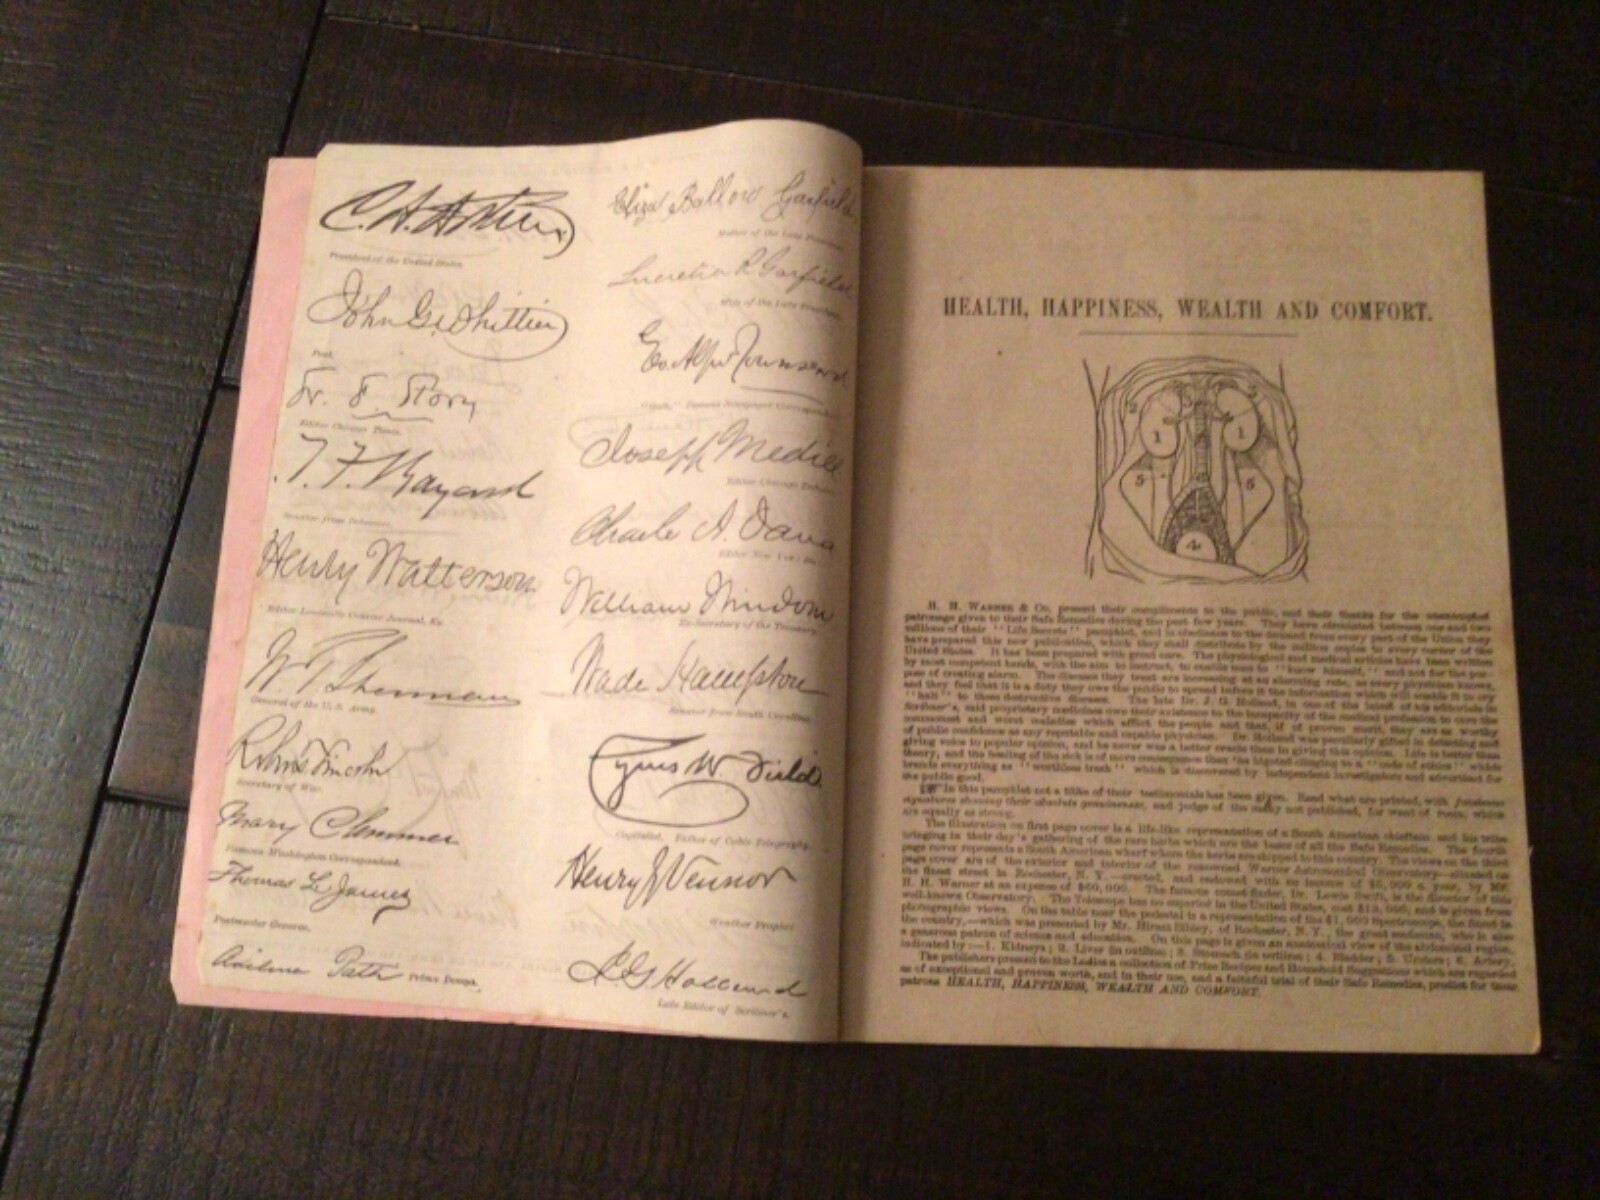 C. A. Arthur
President of the United States.
John G. Whittier
Poet.
F. Story
Editor Chicago Times.
T. F. Bayard
Senator from Delaware.
Henry Watterson
Editor Louisville Courier Journal, Ky.
W. T. Sherman
General of the U. S. Army.
Robt. T. Lincoln
Secretary of War.
Mary Clemmer
Famous Washington Correspondent.
Thomas L. James
Postmaster General.
Adelina Patti Prima Donna.
Eliza Ballou Garfield.
Mother of the Late President.
Lucretia R Garfield
Wife of the Late President.
Geo. Alfred Townsend
"Gath," Famous Newspaper Correspondent.
Joseph Medill
Editor Chicago Tribune.
Charles A. Dana
Editor New York Sun.
William Windom
Ex-Secretary of the Treasury.
Wade Hampton
Senator from South Carolina.
Cyrus W. Field.
Capitalist, Father of Cable Telegraphy.
Henry G Vennor
Weather Prophet.
J. G. Holland
Late Editor of Scribner's.
HEALTH, HAPPINESS, WEALTH AND COMFORT.
2 3 2
1 1
5 5
4
H. H. WARNER & CO. present their compliments to the public, and their thanks for the unexampled
patronage given to their Safe Remedies during the past few years. They have circulated between one and two
millions of their "Life Secrets" pamphlet, and in obedience to the demand from every part of the Union they
have prepared this new publication, which they shall distribute by the million copies to every corner of the
United States. It has been prepared with great care. The physiological and medical articles have been written
by most competent hands, with the aim to instruct, to enable men to "know himself," and not for the pur-
pose of creating alarm. The diseases they treat are increasing at an alarming rate, as every physician knows,
and they feel that it is a duty they owe the public to spread before it the information which will enable it to cry
"halt" to these destructive diseases. The late Dr. J. G. Holland, in one of the latest of his editorials in
Scribner's, said proprietary medicines owe their existence to the incapacity of the medical profession to cure the
commonest and worst maladies which afflict the people and that, if of proven merit, they are as worthy
of public confidence as any reputable and capable physician. Dr. Holland was peculiarly gifted in detecting and
giving voice to popular opinion, and he never was a better oracle than in giving this opinion. Life is better than
theory, and the healing of the sick is of more consequence than the bigoted clinging to a "code of ethics" which
brands everything as "worthless trash" which is discovered by independent investigators and advertised for
the public good.
☞ In this pamphlet not a tithe of their testimonials has been given. Read what are printed, with facsimile
signatures showing their absolute genuineness, and judge of the many not published, for want of room, which
are equally as strong.
The illustration on first page cover is a life-like representation of a South American chieftain and his tribe
bringing in their day's gathering of the rare herbs which are the basis of all the Safe Remedies. The fourth
page cover represents a South American wharf where the herbs are shipped to this country. The views on the third
page cover are of the exterior and interior of the renowned Warner Astronomical Observatory—situated on
the finest street in Rochester, N. Y.—erected, and endowed with an income of $5,000 a year, by Mr.
H. H. Warner at an expense of $60,000. The famous comet finder, Dr. Lewis Swift, is the director of this
well-known Observatory. The Telescope has no superior in the United States, cost $13,000, and is given from
photographic views. On the table near the pedestal is a representation of the $1,000 Spectroscope, the finest in
the country,—which was presented by Mr. Hiram Sibley, of Rochester, N. Y., the great seedsman, who is also
a generous patron of science and education. On this page is given an anatomical view of the abdominal region
indicated by:—1. Kidneys; 2. Liver (in outline); 3. Stomach (in outline); 4. Bladder; 5. Ureters; 6. Artery.
The publishers present to the Ladies a collection of Prize Recipes and Household Suggestions which are regarded
as of exceptional and proven worth, and in their use, and a faithful trial of their Safe Remedies, predict for their
patrons HEALTH, HAPPINESS, WEALTH AND COMFORT.